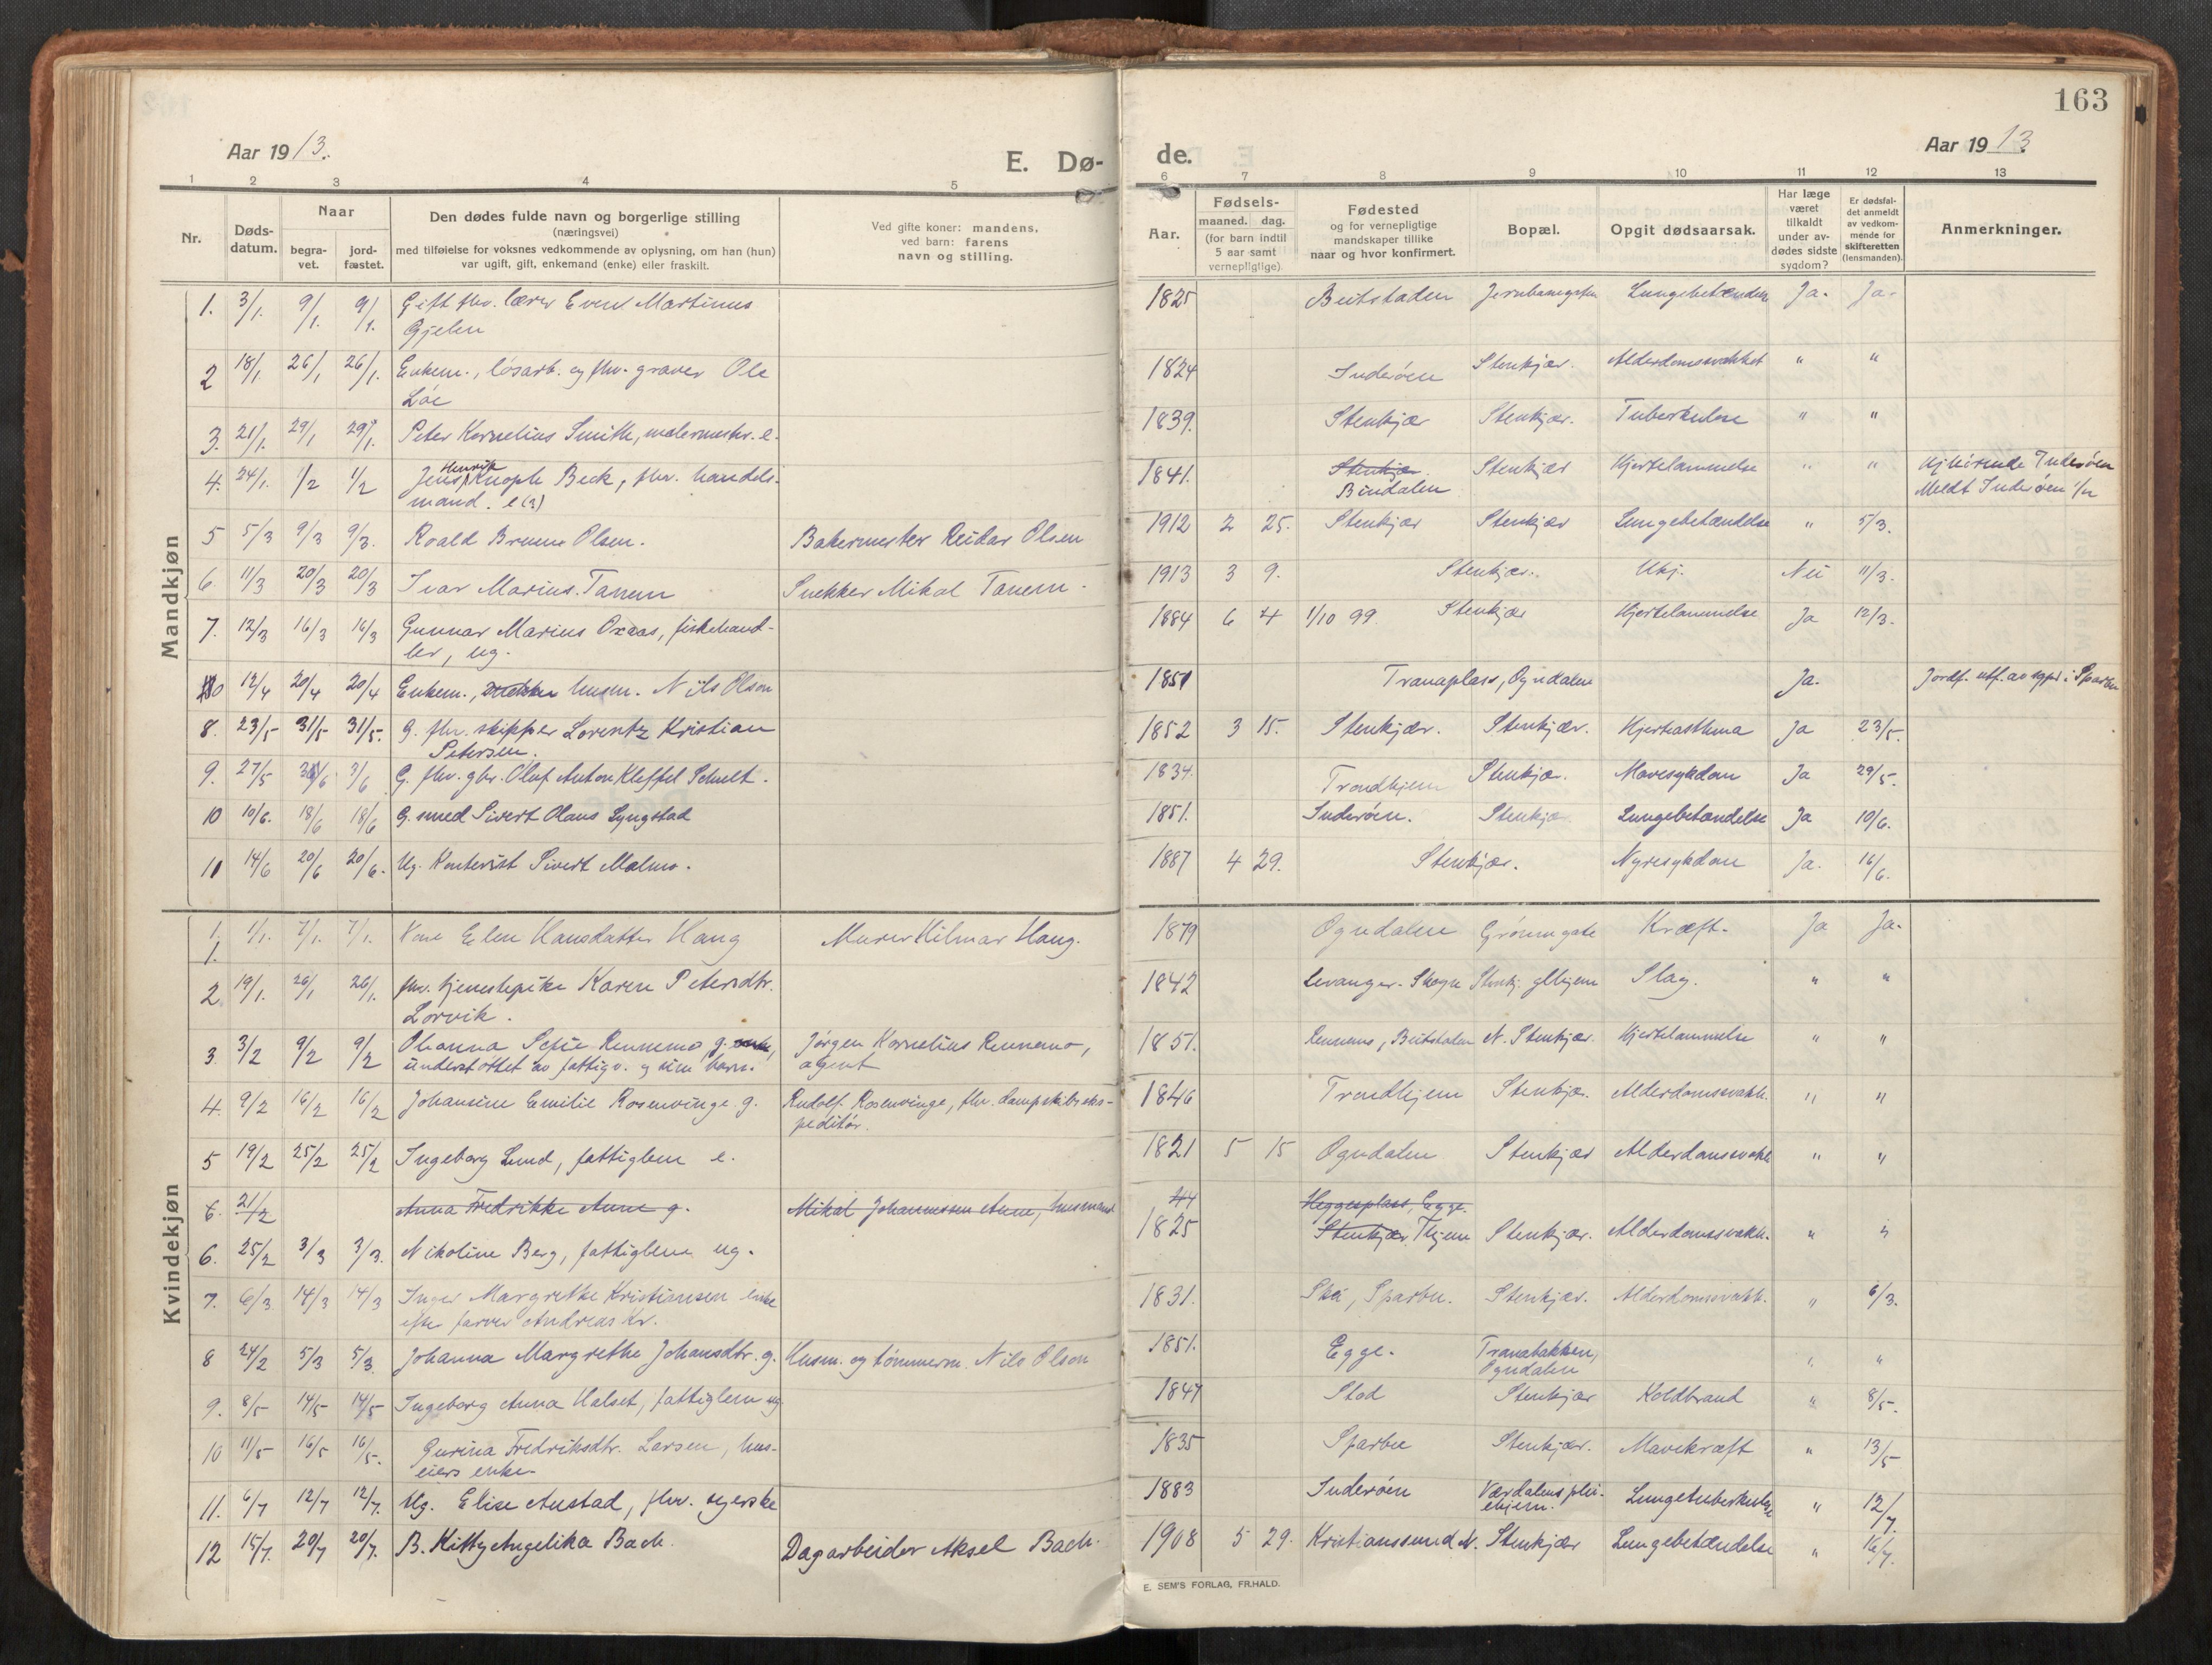 163
Aar 1913.
E. Dø-
de.
Aar 1913
1 2 3 4 5 6 7 8 9 10 11 12 13
Nr.
Døds-
datum.
Naar
begra-
vet.
jord-
fæstet.
Den dødes fulde navn og borgerlige stilling
(næringsvei)
med tilføielse for voksnes vedkommende av oplysning, om han (hun)
var ugift, gift, enkemand (enke) eller fraskilt.
Ved gifte koner: mandens,
ved barn: farens
navn og stilling.
Aar.
Fødsels-
maaned. dag.
(for barn indtil
5 aar samt
vernepligtige).
Fødested
og for vernepligtige
mandskaper tillike
naar og hvor konfirmert.
Bopæl.
Opgit dødsaarsak.
Har læge
været
tilkaldt
under av-
dødes sidste
sygdom?
Er dødsfal-
det anmeldt
av vedkom-
mende for
skifteretten
(lensmanden).
Anmerkninger.
Mandkjøn
1. 3/1. 9/1. 9/1. Gift fhv. lærer Even Martinus 1825 Beitstaden Lungebetændelse Ja. Ja.
Gjelen
2 18/1. 26/1 26/1. Enkem., løsarb. og fhv. graver Ole 1824 Inderøen Stenkjær. Alderdomssvakhet " "
Løe
3. 21/1. 29/1 29/1. Peter Kornelius Smith, malermester. e. 1839. Stenkjær Stenkjær. Tuberkulose " "
4. 24/1. 1/2 1/2 Jens Henrik Knoph Beck, fhv. handels- 1841. Stenkjær. Stenkjær Hjertelammelse " " Hjhørende Inderøen
mand. e(?) Bindalen Meldt Inderøen
5 5/3 9/3 9/3. Roald Bruun Olsen. Bakermester Reidar Olsen 1912 2 25. Stenkjær Stenkjær Lungebetændelse " 5/3.
6. 11/3 20/3 20/3 Ivar Marius Tanem Snekker Mikal Tanem. 1913 3 9. Stenkjær. Ukj. Nei 11/3.
7. 12/3 16/3 16/3 Gunnar Marius Oxaas, fiskehand- 1884 6 4 1/10 99. Stenkjær Hjertelammelse Ja 12/3.
ler, ug.
10 12/4 20/4 20/4 Enkem., husm. Nils Olson 1851 Tranaplass, Ogndalen Ja. Jordf. utf. av sgpr i Sparbu
8. 23/5 31/5 31/5. G. fhv. skipper Lorentz Kristian 1852 3 15. Stenkjær. Stenkjær. Hjerteasthma Ja 23/5.
Petersen.
9. 27/5 3/6 3/6 G. fhv. gbr. Oluf Anton Kleffel Schult. 1834. Trondhjem Stenkjær. Mavesykdom Ja 29/5.
10 10/6. 18/6 18/6 G. smed Sivert Olaus Lyngstad 1851. Inderøen. Stenkjær Lungebetændelse Ja 10/6.
11 14/6 20/6 20/6. Ug. Kontorist Sivert Malmo. 1887 4 29. Stenkjær. Nyresykdom Ja. 16/6.
Kvindekjøn
1. 1/1. 7/1. 7/1. Kone Elen Hansdatter Haug Murer Hilmar Haug. 1879 Ogndalen Grønnegate Kræft. Ja Ja.
1.
2. 19/1. 26/1 26/1. fhv. tjenestepike Karen Petersdtr. 1842 Levanger-Skogn Stenkj. glhjem Slag. " "
Lorvik.
3. 3/2 9/2 9/2 Olianna Sofie Rennemo g. Jørgen Kornelius Rennemo, 1851. Rennemo, Beitstaden N. Stenkjær. Hjertelammelse " "
understøttet av fattigv. og sine barn. agent
4. 9/2 16/2 16/2 Johansine Emilie Rosenvinge g. Rudolf Rosenvinge, fhv. dampskibseks- 1846 Trondhjem Stenkjær. Alderdomssvakh. " "
peditør.
5 19/2 25/2 25/2 Ingeborg Lund, fattiglem e. 1821 5 15 Ogndalen Stenkjær Alderdomssvakh " "
6. 21/2 Anna Fredrikke Aune g. Mikal Johannessen Aune, husmand 44 Heggesplass, Egge.
6. 25/2 3/3 3/3. Nikoline Berg, fattiglem ug. 1825 Stenkjær Thjem Stenkjær. Alderdomssvakh. " "
7. 6/3 14/3 14/3 Inger Margrethe Kristiansen enke 1831. Skei, Sparbu. Stenkjær. Alderdomssvakh. " 6/3.
efter farver Andreas Kr.
8 24/2 5/3 5/3. Johanna Margrethe Johansdtr. g. Husm. og tømmerm. Nils Olson 1851. Egge. Tranabakken, " "
Ogndalen
9. 8/5 14/5 14/5 Ingeborg Anna Halset, fattiglem ug 1847 Stod Stenkjær Koldbrand " 8/5.
10 11/5 16/5 16/5. Gurina Fredriksdtr. Larsen, hus- 1835 Sparbu Stenkjær. Mavekræft " 13/5
eiers enke.
11. 6/7 12/7 12/7. Ug. Elise Austad, fhv. syerske 1883 Inderøen Værdalens plei- Lungetuberkulose " 12/7.
ehjem.
12 15/7. 20/7 20/7. B. Kitty Angelika Bach. Dagarbeider Aksel Bach. 1908 5 29. Kristianssund N. Stenkjær Lungebetændelse " 16/7.
E. SEM'S FORLAG, FR.HALD.